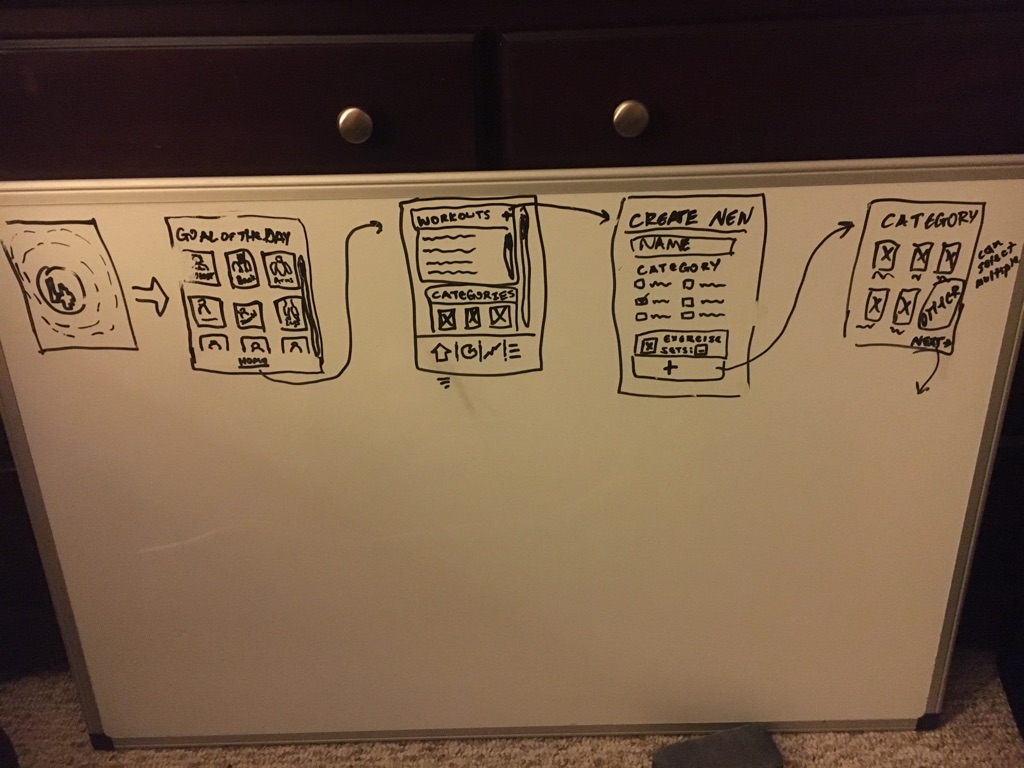 GOAL OF THE DAY
Arms
HOME
WORKOUTS +
CATEGORIES
CREATE NEW
NAME
CATEGORY
EXERCISE
SETS:
+
CATEGORY
OTHER
NEXT
can
select
multiple